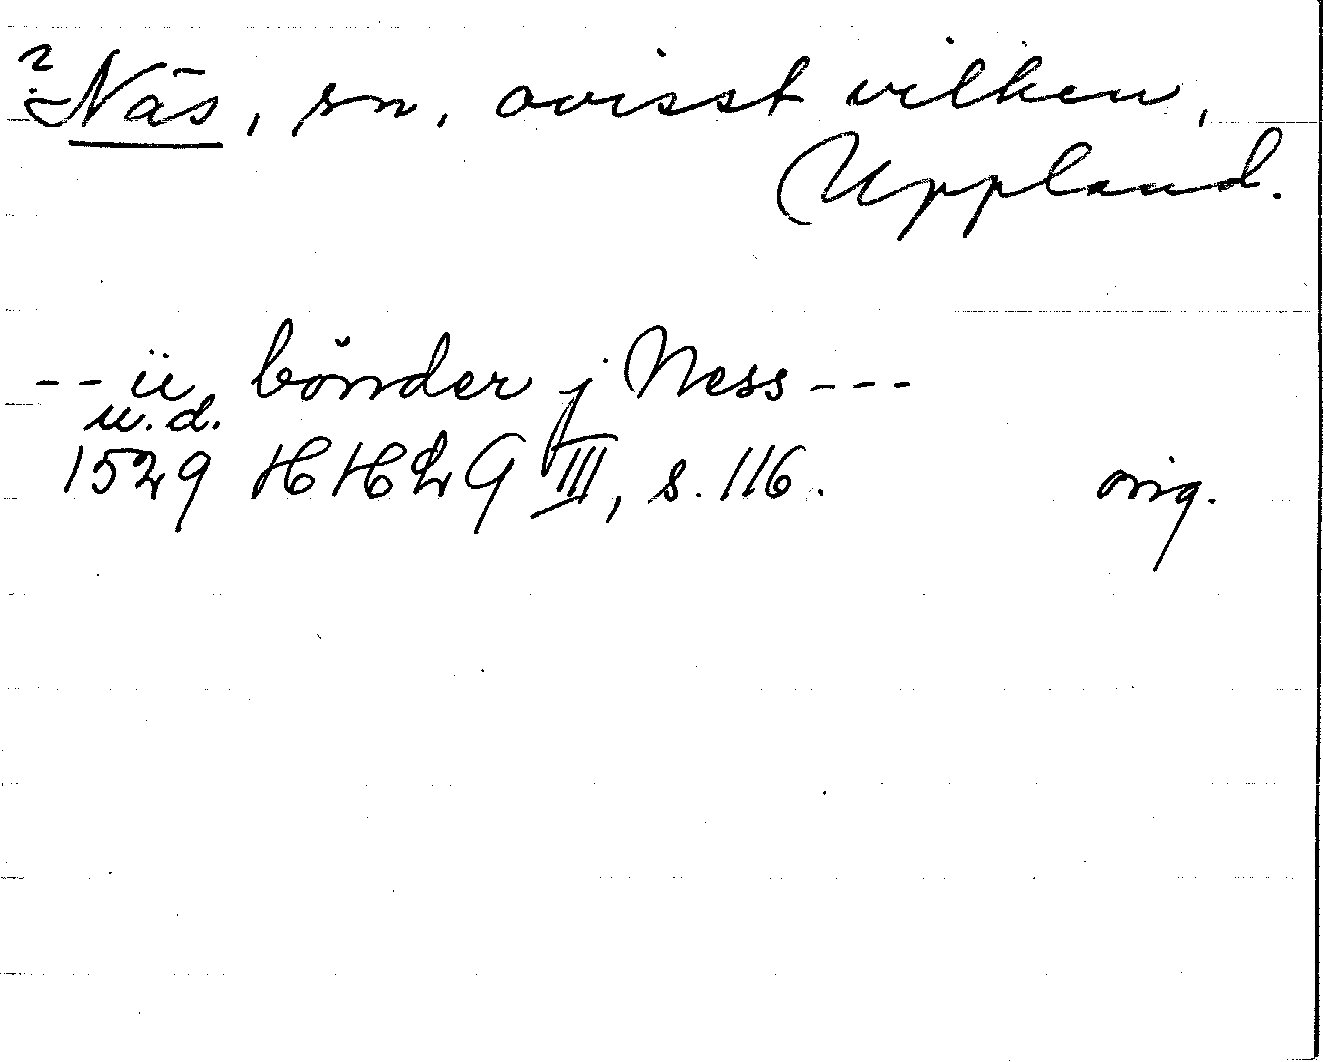 ? Näs, sn, ovisst vilken,
Uppland.
-- ii bönder j Ness ---
u.d.
1529 HH2 G III, s. 116. orig.